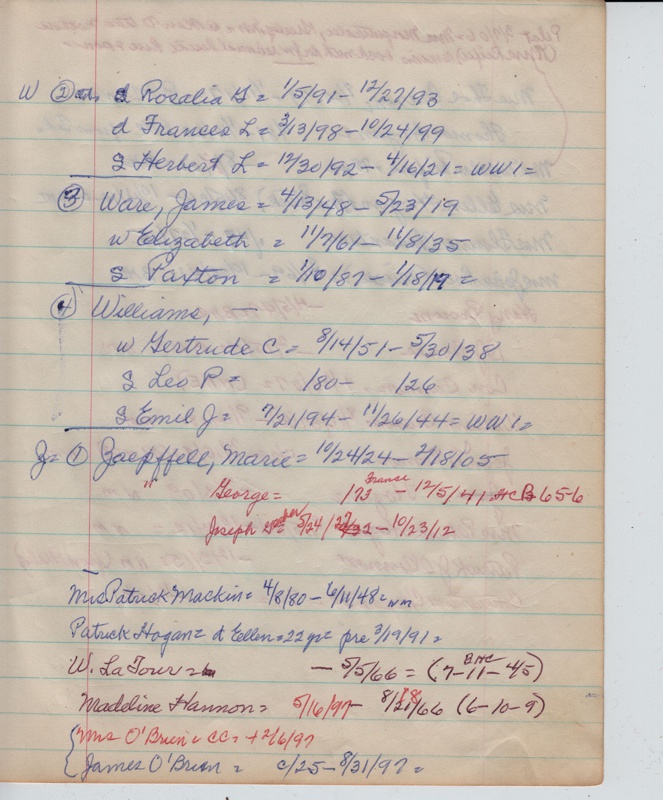 W ② d Rosalia G = 1/5/91 - 12/27/93
d Frances L = 3/13/98 - 10/24/99
S Herbert L = 12/30/92 - 4/16/21 = WW1 =
③ Ware, James = 4/13/48 - 5/23/19
w Elizabeth = 11/7/61 - 11/8/35
S Paxton = 1/10/87 - 1/18/19 =
④ Williams, -
w Gertrude C = 8/14/51 - 5/30/38
S Leo P = /80 - /26
S Emil J = 7/21/94 - 11/26/44 = WW1 =
Z = ① Zaepffell, Marie = 10/24/24 - 2/18/05
" George = /73 France - 12/5/41 HCB 65-6
Joseph = 5/24/27 - 10/23/12
Mrs Patrick Mackin = 4/8/80 - 6/11/48 = nm
Patrick Hogan = d Ellen = 22 yr pre 3/19/91 =
W. LaTour = - 5/5/66 = (7-11-45) BNC
Madeline Hannon = 5/16/97 - 8/28/66 (6-10-9)
Mrs O'Brien = CC = + 2/6/97
James O'Brien = c/25 - 8/31/97 =